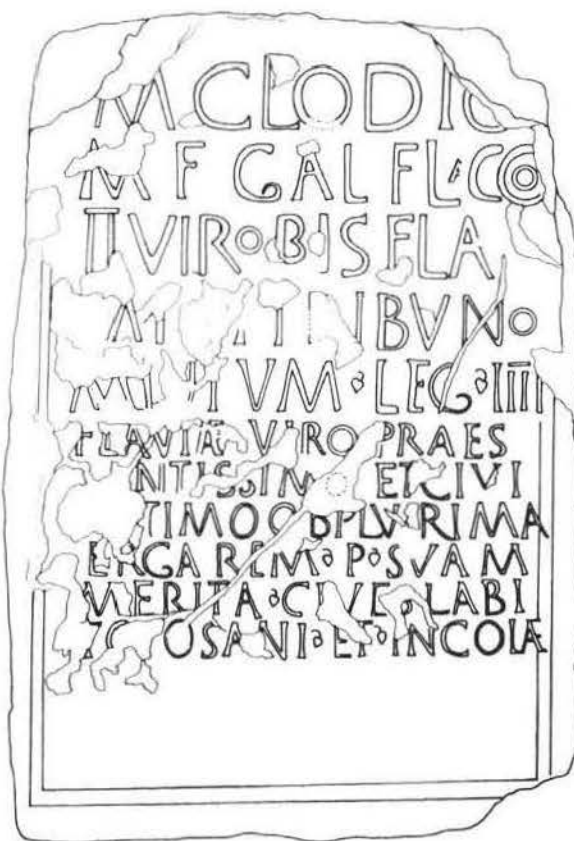 M CLODIO
M F GAL FLACCO
IIVIRO BIS FLA
TRIBVNO
MILITVM LEG IIII
FLAVIAE VIRO PRAES
NTISSIMO ET CIVI
TIMO OB PLVRIMA
ERGA REM P SVAM
MERITA CIVES LABI
TOLOSANI ET INCOLAE